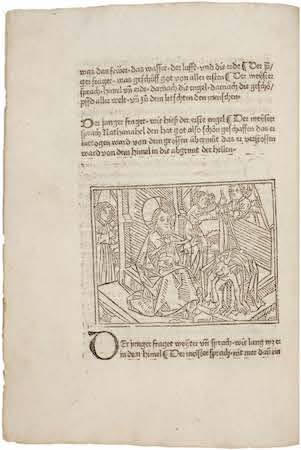 was das fewer · das wasser · der lufft · vnd die erde ¶ Der
ger fraget · was geschuff got von aller ersten ¶ Der meister
sprach · himel vn̄ erde · darnach die engel · darnach die geschö
pfd aller welt · vn̄ zu dem letschten den menschen
Der junger fraget · wie hieß der erste engel ¶ Der meister
sprach Rathanahel den hat got also schön geschaffen das er
betrogen ward von dem grossen übermut das er verstossen
ward von dem himel in die abgrunt der hellen
Der junger fraget weyter vn̄ sprach · wie lang was er
in dem himel ¶ Der meister sprach · nit mer dan̄ ein